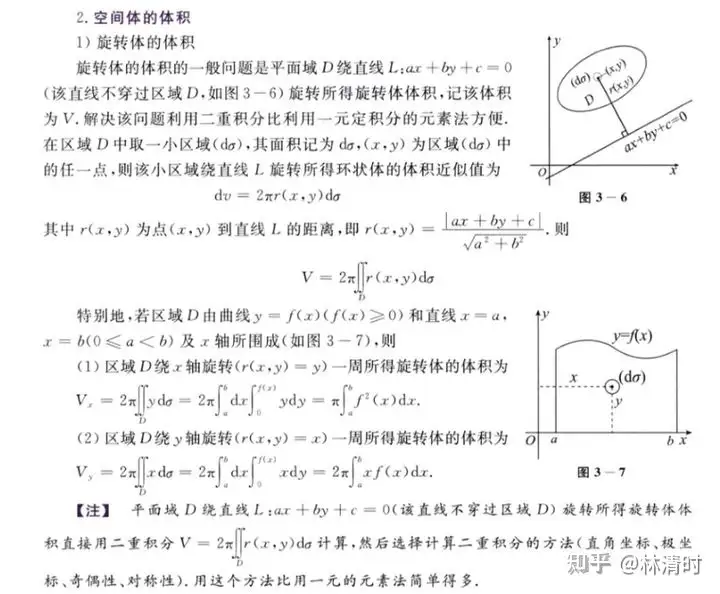 2. 空间体的体积
1) 旋转体的体积
旋转体的体积的一般问题是平面域 D 绕直线 L:ax+by+c=0
(该直线不穿过区域 D,如图 3-6) 旋转所得旋转体体积,记该体积
为 V. 解决该问题利用二重积分比利用一元定积分的元素法方便.
在区域 D 中取一小区域(dσ),其面积记为 dσ,(x,y) 为区域(dσ) 中
的任一点,则该小区域绕直线 L 旋转所得环状体的体积近似值为
dv = 2πr(x,y)dσ
其中 r(x,y) 为点(x,y) 到直线 L 的距离,即 r(x,y) = |ax+by+c| / √(a²+b²). 则
V = 2π∬_D r(x,y)dσ
y
(dσ)
(x,y)
D
r(x,y)
ax+by+c=0
O
x
图 3-6
特别地,若区域 D 由曲线 y = f(x)(f(x)≥0) 和直线 x = a,
x = b(0≤a<b) 及 x 轴所围成(如图 3-7),则
(1) 区域 D 绕 x 轴旋转(r(x,y)=y) 一周所得旋转体的体积为
V_x = 2π∬_D ydσ = 2π∫_a^b dx∫_0^{f(x)} ydy = π∫_a^b f²(x)dx.
(2) 区域 D 绕 y 轴旋转(r(x,y)=x) 一周所得旋转体的体积为
V_y = 2π∬_D xdσ = 2π∫_a^b dx∫_0^{f(x)} xdy = 2π∫_a^b xf(x)dx.
y
y=f(x)
x
(dσ)
y
O
a
b
x
图 3-7
【注】 平面域 D 绕直线 L:ax+by+c=0(该直线不穿过区域 D) 旋转所得旋转体体
积直接用二重积分 V = 2π∬_D r(x,y)dσ 计算,然后选择计算二重积分的方法(直角坐标、极坐
标、奇偶性、对称性). 用这个方法比用一元的元素法简单得多.
知乎 @林清时